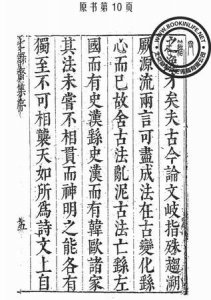 原书第 10 页
WWW.BOOKINLIFE.NET
才矣夫古今論文岐指殊趨溯
厥源流兩言可盡成法在古變化繇
心而已故舍古法亂泥古法亡繇左
國而有史漢繇史漢而有韓歐諸家
其法未嘗不相貫而神明之能各有
獨至不可相襲天如所為詩文上自